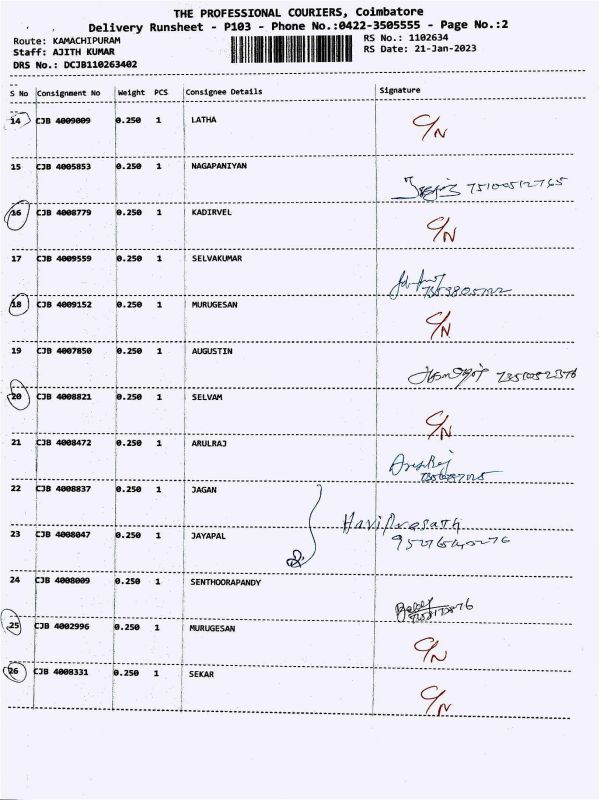 THE PROFESSIONAL COURIERS, Coimbatore
Delivery Runsheet - P103 - Phone No.:0422-3505555 - Page No.:2
Route: KAMACHIPURAM RS No.: 1102634
Staff: AJITH KUMAR RS Date: 21-Jan-2023
DRS No.: DCJB110263402
S No Consignment No Weight PCS Consignee Details Signature
14 CJB 4009009 0.250 1 LATHA C/N
15 CJB 4005853 0.250 1 NAGAPANIYAN
16 CJB 4008779 0.250 1 KADIRVEL C/N
17 CJB 4009559 0.250 1 SELVAKUMAR
18 CJB 4009152 0.250 1 MURUGESAN C/N
19 CJB 4007850 0.250 1 AUGUSTIN
20 CJB 4008821 0.250 1 SELVAM C/N
21 CJB 4008472 0.250 1 ARULRAJ
22 CJB 4008837 0.250 1 JAGAN
23 CJB 4008047 0.250 1 JAYAPAL
24 CJB 4008009 0.250 1 SENTHOORAPANDY
25 CJB 4002996 0.250 1 MURUGESAN C/N
26 CJB 4008331 0.250 1 SEKAR C/N